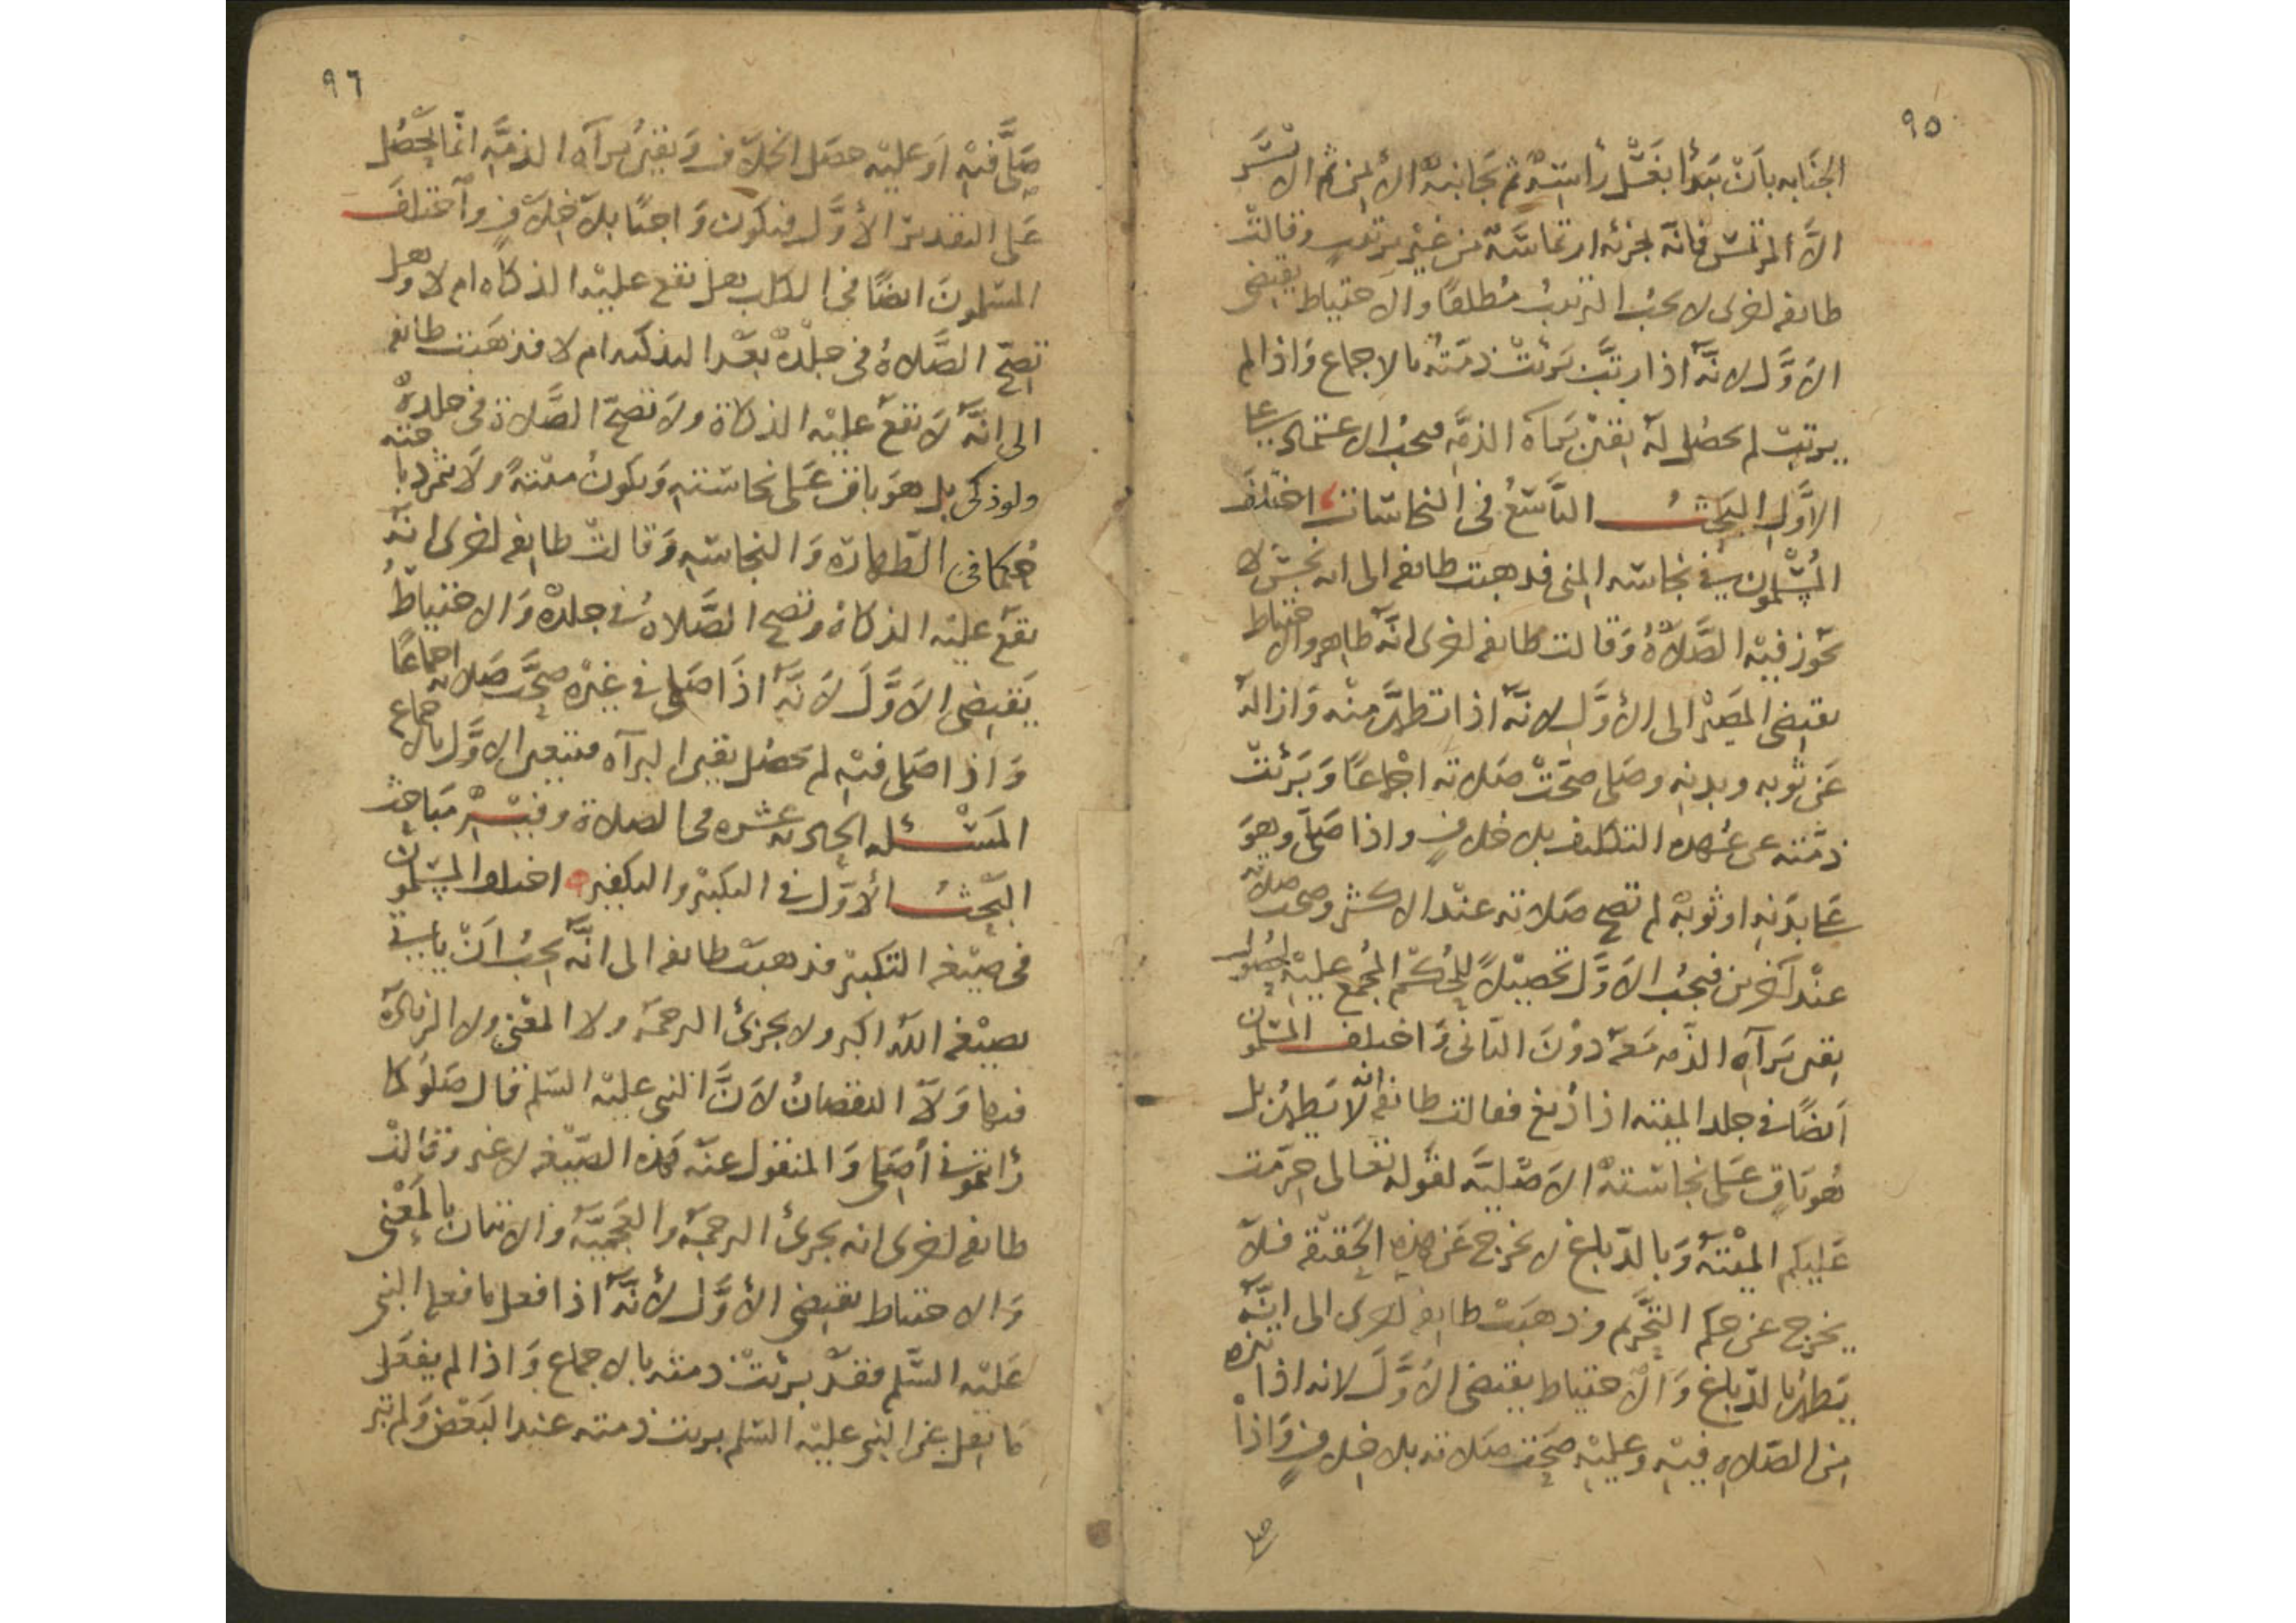 ٩٥
الجنابه بان يبدأ بغسل رأسه ثم بجانبه الأيمن ثم الايسر
الا المرتمس فانه يجزئه ارتماسه من غير ترتيب وقالت
طائفه اخرى لا يجب الترتيب مطلقا والاحتياط يقتضى
الاول لانه اذا رتب برئت ذمته بالاجماع واذا لم
يرتب لم يحصل له يقين براه الذمه فيجب الاعتماد على
الاول البحث التاسع فى النجاسات اختلف
المسلمون فى نجاسه المنى فذهبت طائفه الى انه نجس لا
تجوز فيه الصلاة وقالت طائفه اخرى انه طاهر والاحتياط
يقتضى المصير الى الأول لانه اذا تطهر منه وازاله
عن ثوبه وبدنه وصلى صحت صلاته اجماعا وبرئت
ذمته عن عهده التكليف بلا خلاف واذا صلى وهو
على بدنه او ثوبه لم تصح صلاته عند الاكثر وصحت صلاته
عند آخرين فيجب الاول تحصيلا للحكم المجمع عليه لحصول
يقين برآه الذمه معه دون الثانى واختلف المسلمون
ايضا فى جلد الميته اذا دبغ فقالت طائفه انه لا يطهر بل
هو باق على نجاسته الاصليه لقوله تعالى حرمت
عليكم الميتة وبالدباغ لا يخرج عن هذه الحقيقه فلا
يخرج عن حكم التحريم وذهبت طائفه اخرى الى انه
يطهر بالدباغ والاحتياط يقتضى الاول لانه اذا تنزه
من الصلاه فيه وعليه صحت صلاته بلا خلاف واذا
صلى
٩٦
صلى فيه او عليه حصل الخلاف ويقين برآه الذمه انما يحصل
على التقدير الأول فيكون واجبا بلا خلاف وآختلف
المسلمون ايضا فى الكلب هل تقع عليه الذكاه ام لا وهل
تصح الصلاة فى جلده بعد التذكيه ام لا فذهبت طائفه
الى انه لا تقع عليه الذكاة ولا تصح الصلاة فى جلده
ولو ذكى بل هو باق على نجاسته ويكون ميتة ولا
حكما فى الطهارة والنجاسه وقالت طائفه اخرى انه
تقع عليه الذكاة وتصح الصلاة فى جلده والاحتياط
يقتضى الاول لانه اذا صلى فى غيره صحت صلاته اجماعا
واذا صلى فيه لم يحصل يقين البرآه فيتعين الاول بالاجماع
المسئله الحاديه عشره فى الصلاة وفيه مباحث
البحث الأول فى التكبير والتكفير اختلف المسلمون
فى صيغه التكبير فذهبت طائفه الى انه يجب ان ياتى
بصيغه الله اكبر ولا يجزئ الترجمه ولا المعنى ولا الزيادة
فيها ولا النقصان لان النبى عليه السلم قال صلوا كما
رأيتمونى أصلى والمنقول عنه هذه الصيغه لا غير وقالت
طائفه اخرى انه يجزئ الترجمة والعجمية والاتيان بالمعنى
والاحتياط يقتضى الأول لأنه اذا فعل ما فعله النبى
عليه السلم فقد برئت ذمته بالاجماع واذا لم يفعل
ما يفعل عن النبى عليه السلم برئت ذمته عند البعض ولم تبر